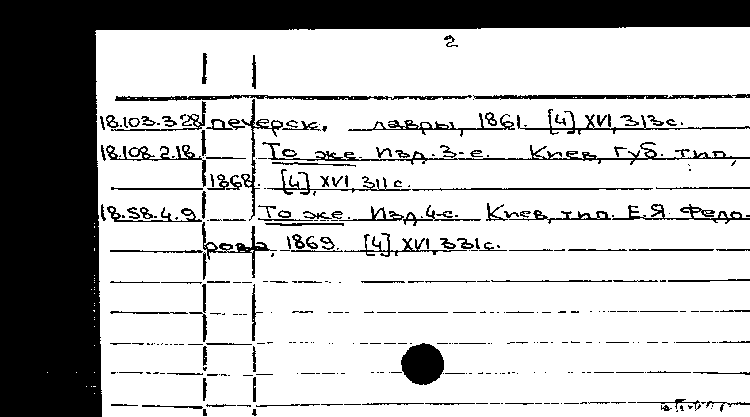 2
18.103.3.28 печерск. лавры, 1861. [4], XVI, 313 с.
18.108.2.18 То же. Изд. 3-е. Киев, Губ. тип.,
1868. [4], XVI, 311 с.
18.58.4.9 То же. Изд. 4-е. Киев, тип. Е.Я. Федо-
рова, 1869. [4], XVI, 331 с.